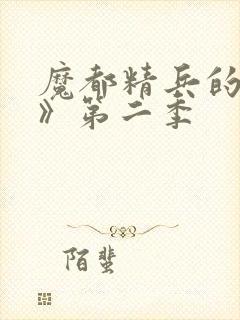 魔都精兵的
》第二季
陌蜚